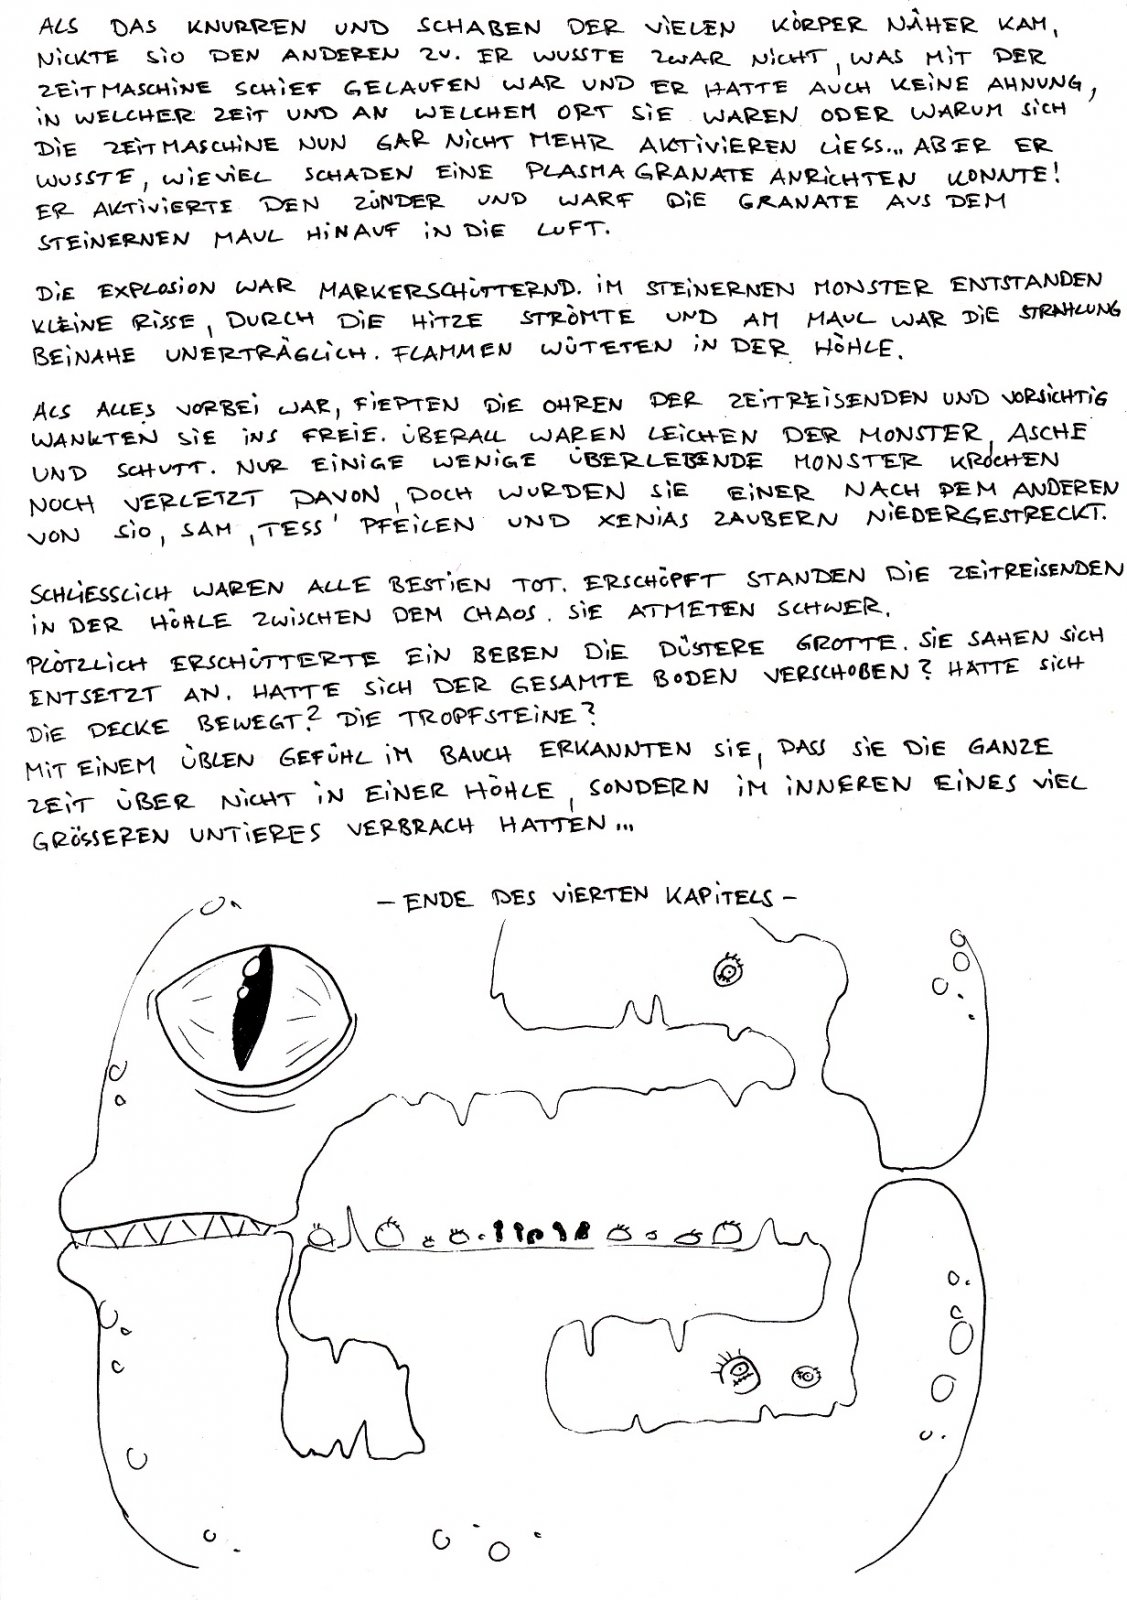 ALS DAS KNURREN UND SCHABEN DER VIELEN KÖRPER NÄHER KAM,
NICKTE SIO DEN ANDEREN ZU. ER WUSSTE ZWAR NICHT, WAS MIT DER
ZEITMASCHINE SCHIEF GELAUFEN WAR UND ER HATTE AUCH KEINE AHNUNG,
IN WELCHER ZEIT UND AN WELCHEM ORT SIE WAREN ODER WARUM SICH
DIE ZEITMASCHINE NUN GAR NICHT MEHR AKTIVIEREN LIESS... ABER ER
WUSSTE, WIEVIEL SCHADEN EINE PLASMAGRANATE ANRICHTEN KONNTE!
ER AKTIVIERTE DEN ZÜNDER UND WARF DIE GRANATE AUS DEM
STEINERNEN MAUL HINAUF IN DIE LUFT.
DIE EXPLOSION WAR MARKERSCHÜTTERND. IM STEINERNEN MONSTER ENTSTANDEN
KLEINE RISSE, DURCH DIE HITZE STRÖMTE UND AM MAUL WAR DIE STRAHLUNG
BEINAHE UNERTRÄGLICH. FLAMMEN WÜTETEN IN DER HÖHLE.
ALS ALLES VORBEI WAR, FIEPTEN DIE OHREN DER ZEITREISENDEN UND VORSICHTIG
WANKTEN SIE INS FREIE. ÜBERALL WAREN LEICHEN DER MONSTER, ASCHE
UND SCHUTT. NUR EINIGE WENIGE ÜBERLEBENDE MONSTER KROCHEN
NOCH VERLETZT DAVON, DOCH WURDEN SIE EINER NACH DEM ANDEREN
VON SIO, SAM, TESS' PFEILEN UND XENIAS ZAUBERN NIEDERGESTRECKT.
SCHLIESSLICH WAREN ALLE BESTIEN TOT. ERSCHÖPFT STANDEN DIE ZEITREISENDEN
IN DER HÖHLE ZWISCHEN DEM CHAOS. SIE ATMETEN SCHWER.
PLÖTZLICH ERSCHÜTTERTE EIN BEBEN DIE DÜSTERE GROTTE. SIE SAHEN SICH
ENTSETZT AN. HATTE SICH DER GESAMTE BODEN VERSCHOBEN? HATTE SICH
DIE DECKE BEWEGT? DIE TROPFSTEINE?
MIT EINEM ÜBLEN GEFÜHL IM BAUCH ERKANNTEN SIE, DASS SIE DIE GANZE
ZEIT ÜBER NICHT IN EINER HÖHLE, SONDERN IM INNEREN EINES VIEL
GRÖSSEREN UNTIERES VERBRACH HATTEN...
- ENDE DES VIERTEN KAPITELS -